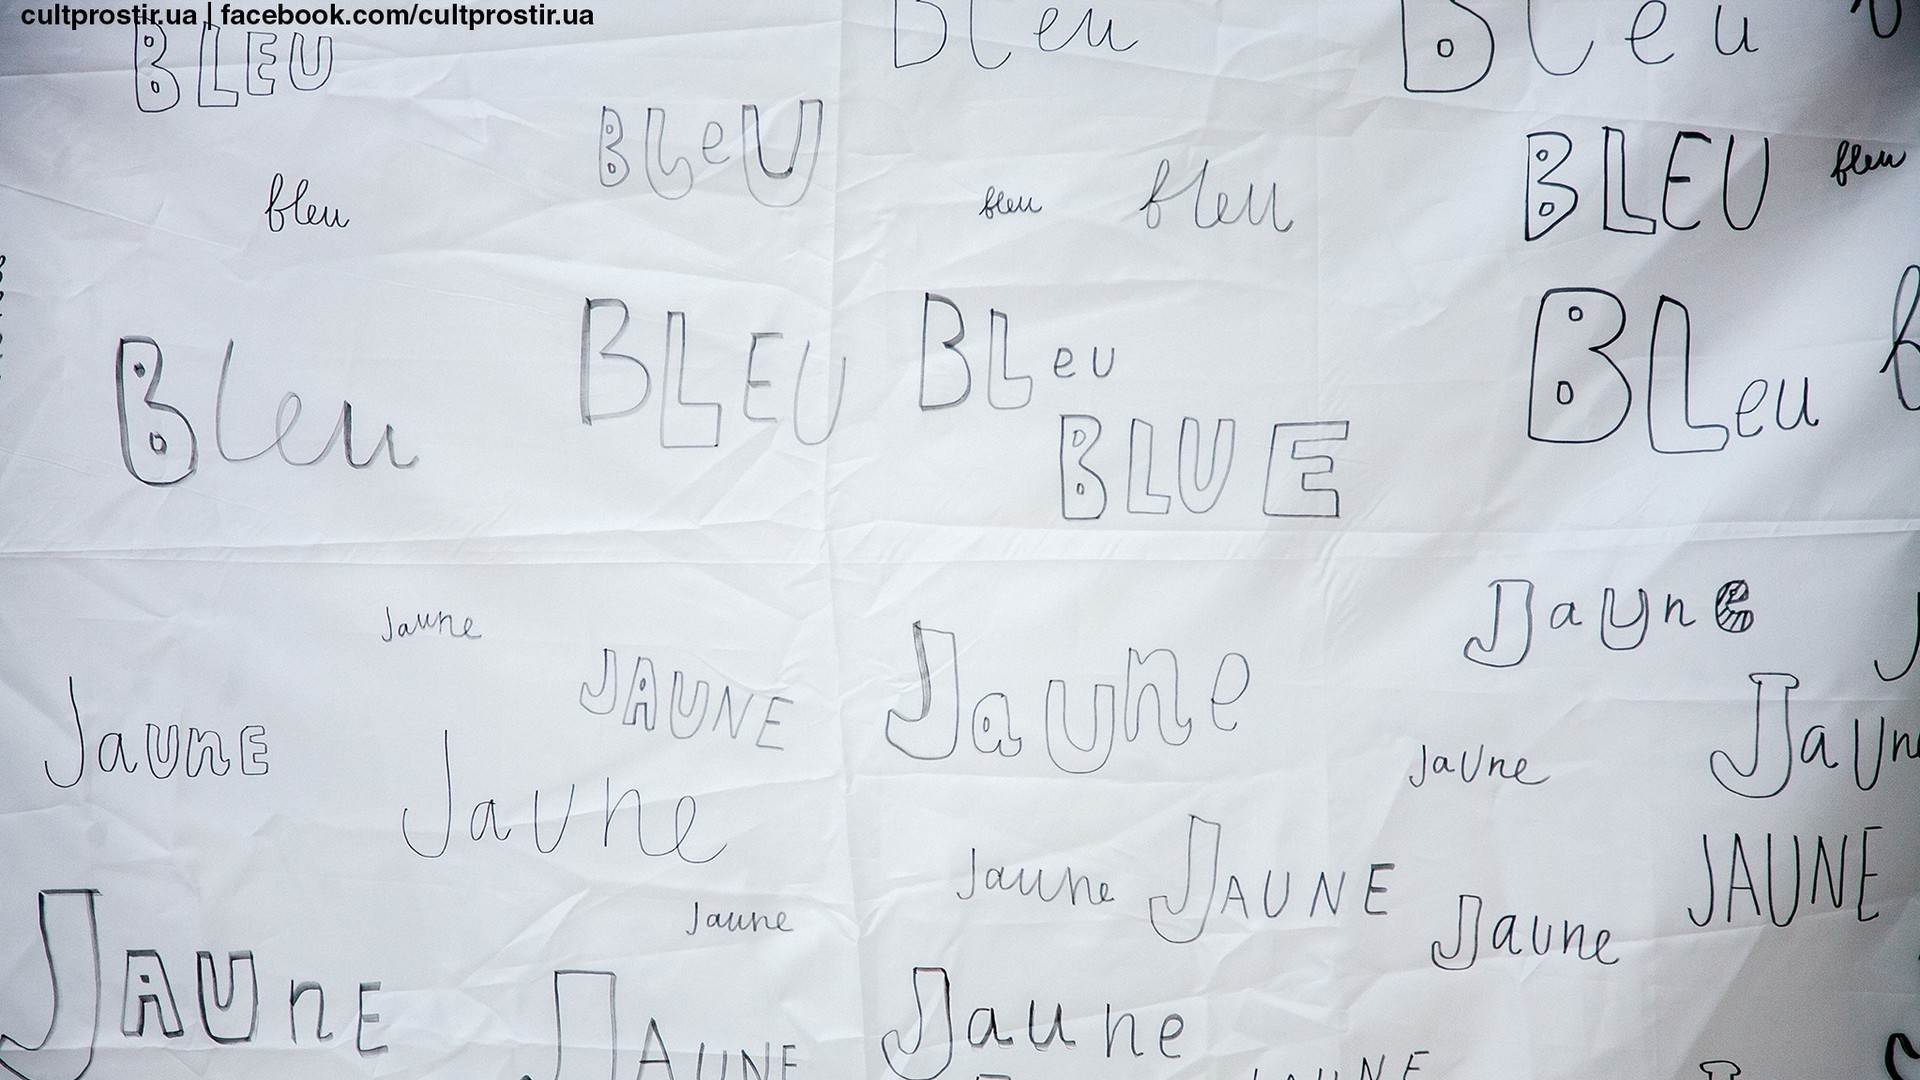 cultprostir.ua | facebook.com/cultprostir.ua
BLEU
Bleu
Bleu
BLeU
BLEU
bleu
bleu
bleu
bleu
Bleu
BLEU
BLeu
BLUE
BLeu
Jaune
Jaune
JaUnE
JAUNE
Jaune
Jaune
Jaune
JaUne
JaUn
Jaune
JAUNE
JAUNE
Jaune
Jaune
JAUnE
JAUNE
Jaune